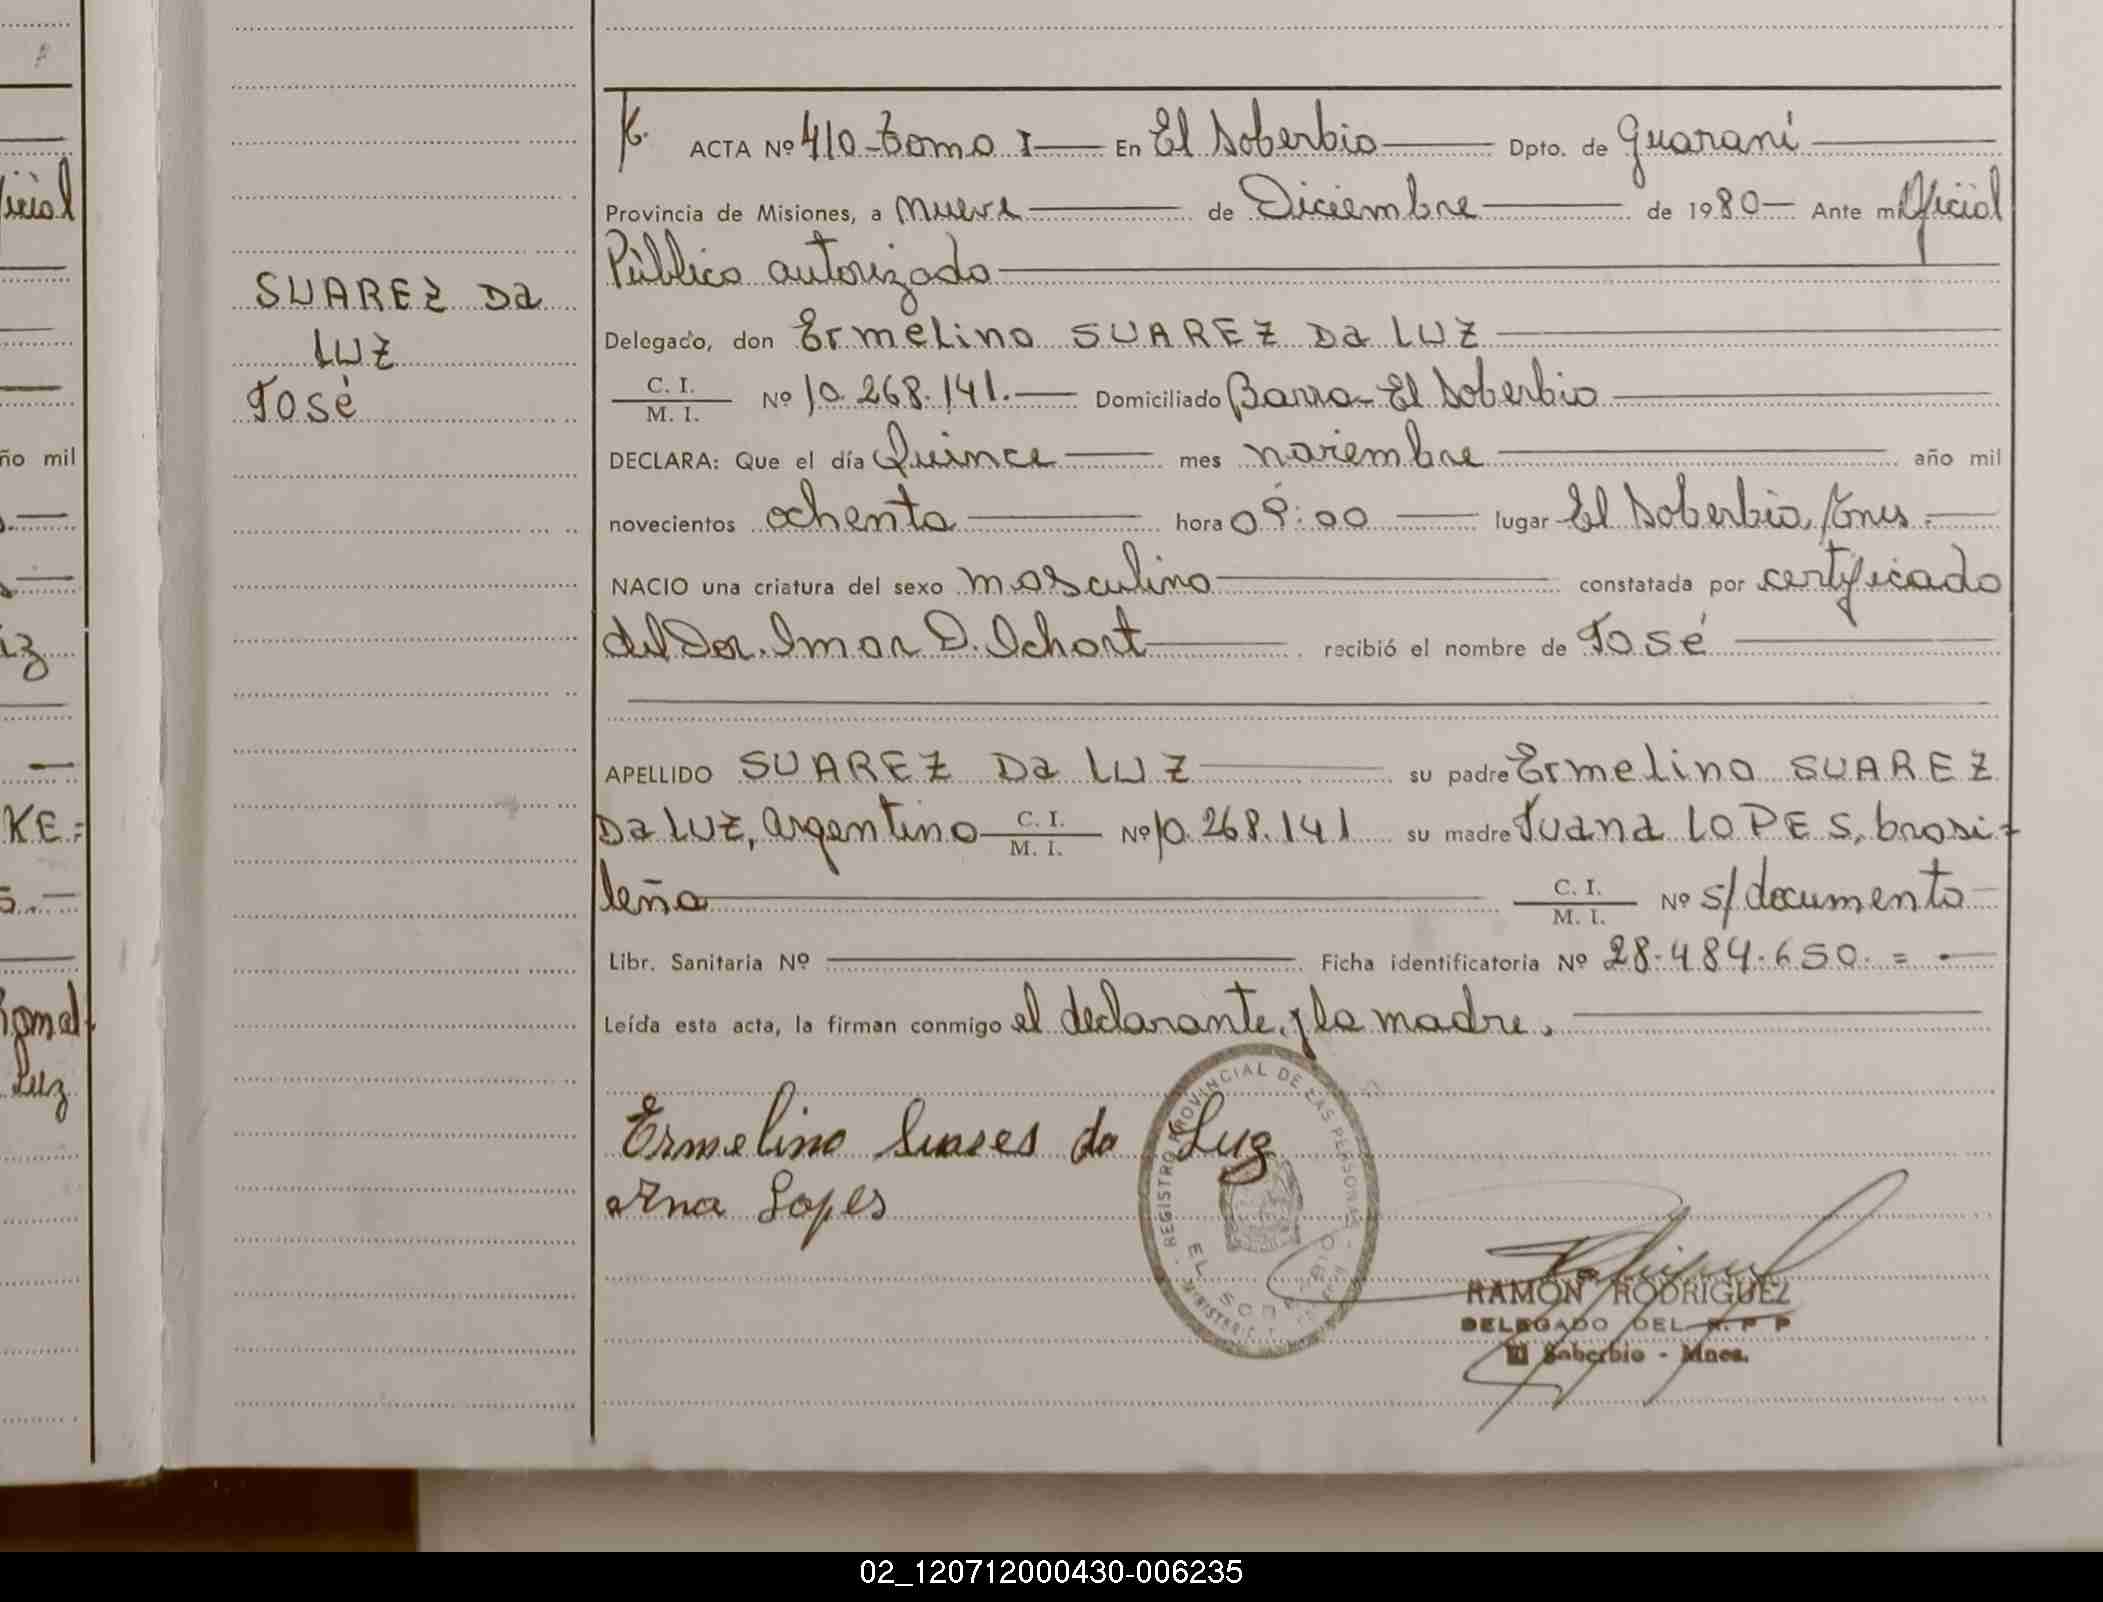 SUAREZ Da
LUZ
José
ACTA Nº 410-Tomo I En El Soberbio Dpto. de Guaraní
Provincia de Misiones, a nueve de Diciembre de 1980 Ante mi Oficial
Público autorizado
Delegado, don Ermelino SUAREZ Da LUZ
C. I.
M. I. Nº 10.268.141. Domiciliado Barra-El Soberbio
DECLARA: Que el día Quince mes noviembre año mil
novecientos ochenta hora 09:00 lugar El Soberbio,
NACIO una criatura del sexo masculino constatada por certificado
del Dor. Imar D. Ichart recibió el nombre de José
APELLIDO SUAREZ Da LUZ su padre Ermelino SUAREZ
Da LUZ, argentino C. I.
M. I. Nº 10.268.141 su madre Juana LOPES, brasi-
leña C. I.
M. I. Nº s/documento
Libr. Sanitaria Nº Ficha identificatoria Nº 28.484.650.=.
Leída esta acta, la firman conmigo el declarante, y la madre.
Ermelino Suares da Luz
Ana Lopes
REGISTRO PROVINCIAL DE LAS PERSONAS
EL SOBERBIO
RAMÓN RODRIGUEZ
DELEGADO DEL R. P P
El Soberbio - Mnes.
año mil
Luz
KE.=
02_120712000430-006235